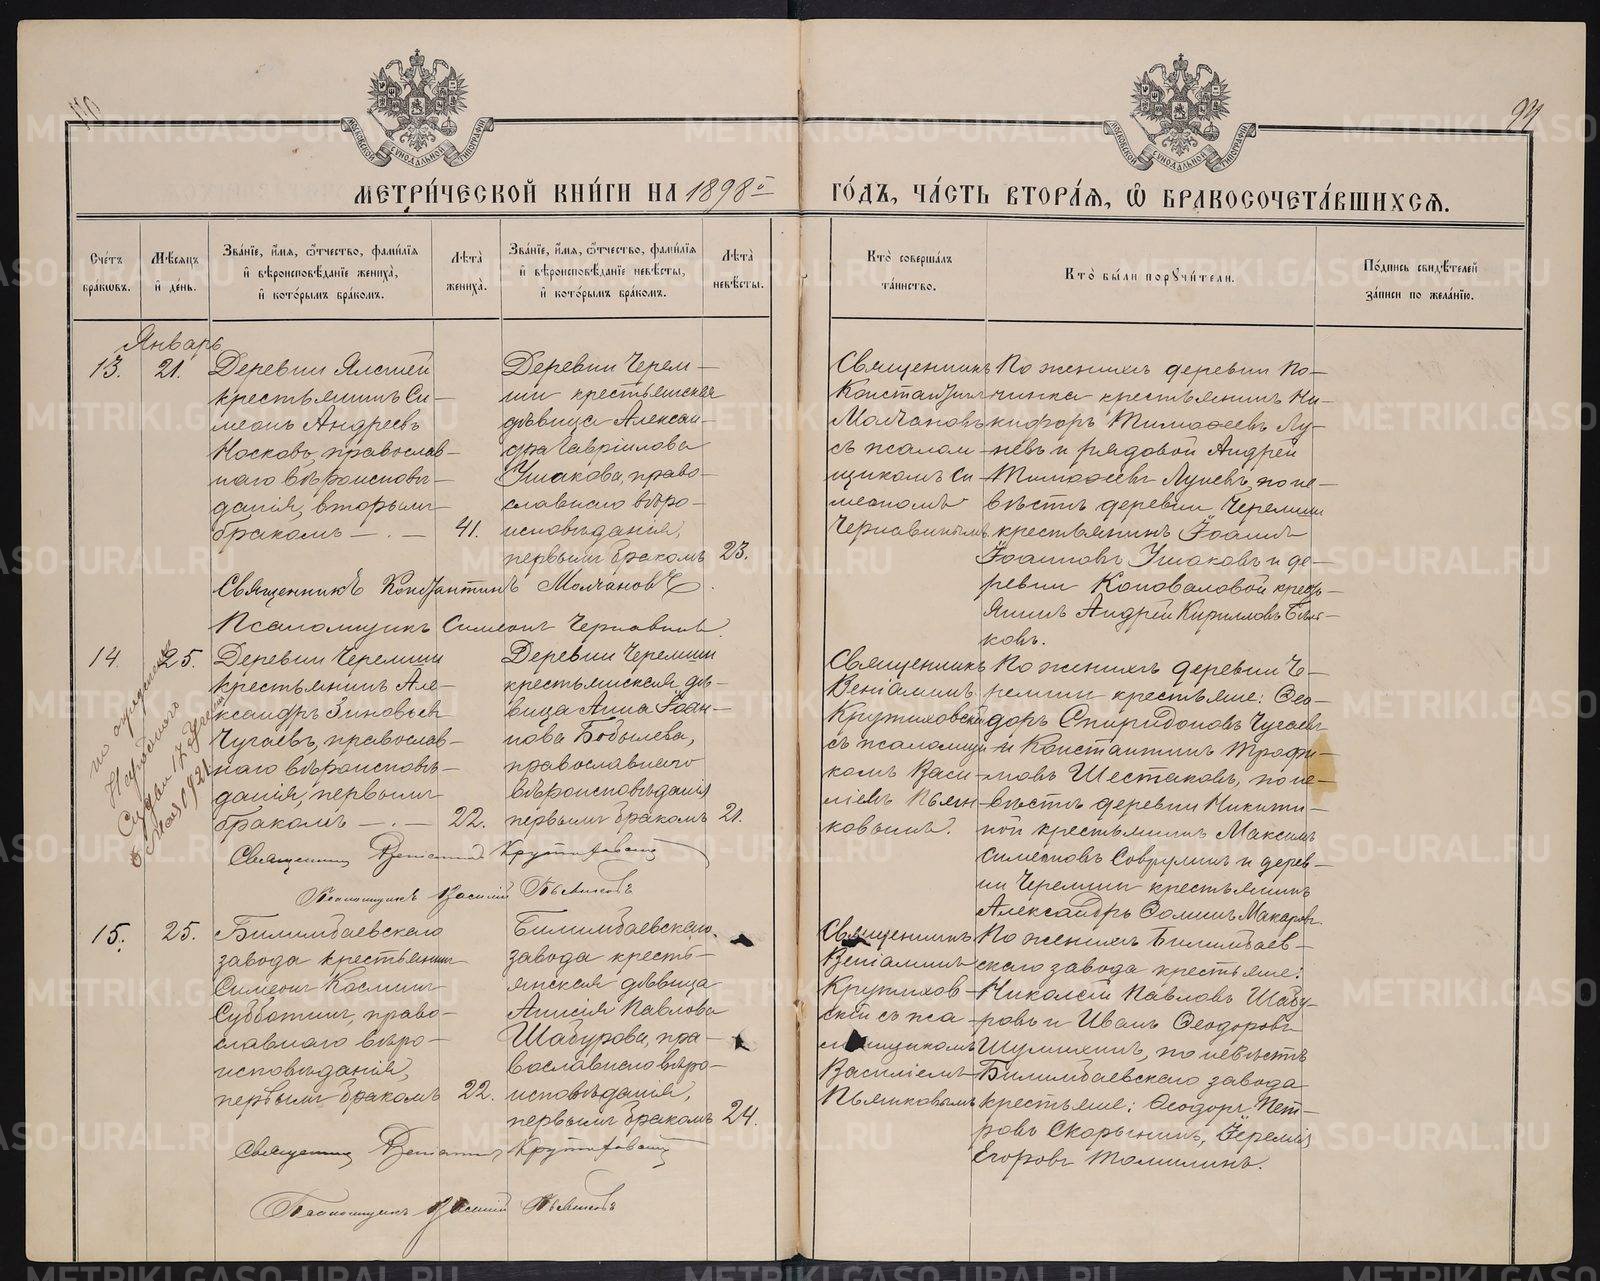 МЕТРИ́ЧЕСКОЙ КНИ́ГИ НА 1898й ГО́ДЪ, ЧА́СТЬ ВТОРА́Я, Ѽ БРАКОСОЧЕТА́ВШИХСЯ.
94
МОСКОВСКОЙ СУНОДАЛЬНОЙ ТИПОГРАФІИ
МОСКОВСКОЙ СУНОДАЛЬНОЙ ТИПОГРАФІИ
Сче́тъ
бра́ковъ.
Мѣсяцъ
и҆ де́нь.
Зва́нїе, и҆́мя, ѻ҆́тчество, фами́лїя
и҆ вѣроисповѣ́данїе жениха̀,
и҆ кото́рымъ бра́комъ.
Лѣ̑та
жениха̀.
Зва́нїе, и҆́мя, ѻ҆́тчество, фами́лїя
и҆ вѣроисповѣ́данїе невѣ́сты,
и҆ кото́рымъ бра́комъ.
Лѣ̑та
невѣ́сты.
Кто̀ соверша́лъ
та́инство.
Кто̀ бы́ли порꙋчи́тели.
По́дпись свидѣ́телей
за́писи по жела́нїю.
Январь
13.
21.
крестьянинъ Си-
меонъ Андреевъ
Носковъ, православ-
наго вѣроисповѣ-
данія, вторымъ
бракомъ — . —
41.
Деревни Черем-
ши крестьянская
дѣвица Алексан-
дра Гавріилова
Ушакова, право-
славнаго вѣро-
исповѣданія,
первымъ бракомъ
23.
Священникъ
Константинъ
Молчановъ
съ псалом-
щикомъ Си-
меономъ
Чернавинымъ
По женихѣ деревни По-
чинка крестьянинъ Ни-
кифоръ Тимофеевъ Лу-
невъ и рядовой Андрей
Тимофеевъ Луневъ, по не-
вѣстѣ деревни Черемши
крестьянинъ Іоаннъ
Іоанновъ Ушаковъ и де-
ревни Коноваловой кресть-
янинъ Андрей Кирилловъ Бѣл-
ковъ.
Священникъ Константинъ Молчановъ
Псаломщикъ Симеонъ Чернавинъ.
14.
25.
Деревни Черемши
крестьянинъ Але-
ксандръ Зиновьевъ
Чугаевъ, православ-
наго вѣроисповѣ-
данія, первымъ
бракомъ — . —
22.
Деревни Черемши
крестьянская дѣ-
вица Анна Іоан-
нова Бобылева,
православнаго
вѣроисповѣданія
первымъ бракомъ
21.
Священникъ
Веніаминъ
Крутиховскій
съ псаломщи-
комъ Васи-
ліемъ Пьян-
ковымъ.
По женихѣ деревни Че-
ремши крестьяне: Ѳео-
доръ Спиридоновъ Чугаевъ
и Константинъ Трофи-
мовъ Шестаковъ, по не-
вѣстѣ деревни Никити-
ной крестьянинъ Максимъ
Симеоновъ и дерев-
ни Черемши крестьянинъ
Александръ Макаровъ
Священникъ Веніаминъ Крутиховскій
Псаломщикъ Василій Пьянковъ
по определению
Народного
Судьи 17 уч.
6 Мая 1921
15.
25.
Билимбаевскаго
завода крестьянинъ
Симеонъ Косминъ
Субботинъ, право-
славнаго вѣро-
исповѣданія,
первымъ бракомъ
22.
Билимбаевскаго
завода кресть-
янская дѣвица
Анисія Павлова
Шабурова, пра-
вославнаго вѣро-
исповѣданія,
первымъ бракомъ
24.
Священникъ
Веніаминъ
Крутихов-
скій съ пса-
ломщикомъ
Василіемъ
Пьянковымъ
По женихѣ Билимбаев-
скаго завода крестьяне:
Николай Павловъ Шабу-
ровъ и Иванъ Ѳеодоровъ
Шумихинъ, по невѣстѣ
Билимбаевскаго завода
крестьяне: Ѳеодоръ Пет-
ровъ Скорынинъ, Іеремія
Егоровъ Томилинъ.
Священникъ Веніаминъ Крутиховскій
Псаломщикъ Василій Пьянковъ
METRIKI.GASO-URAL.RU